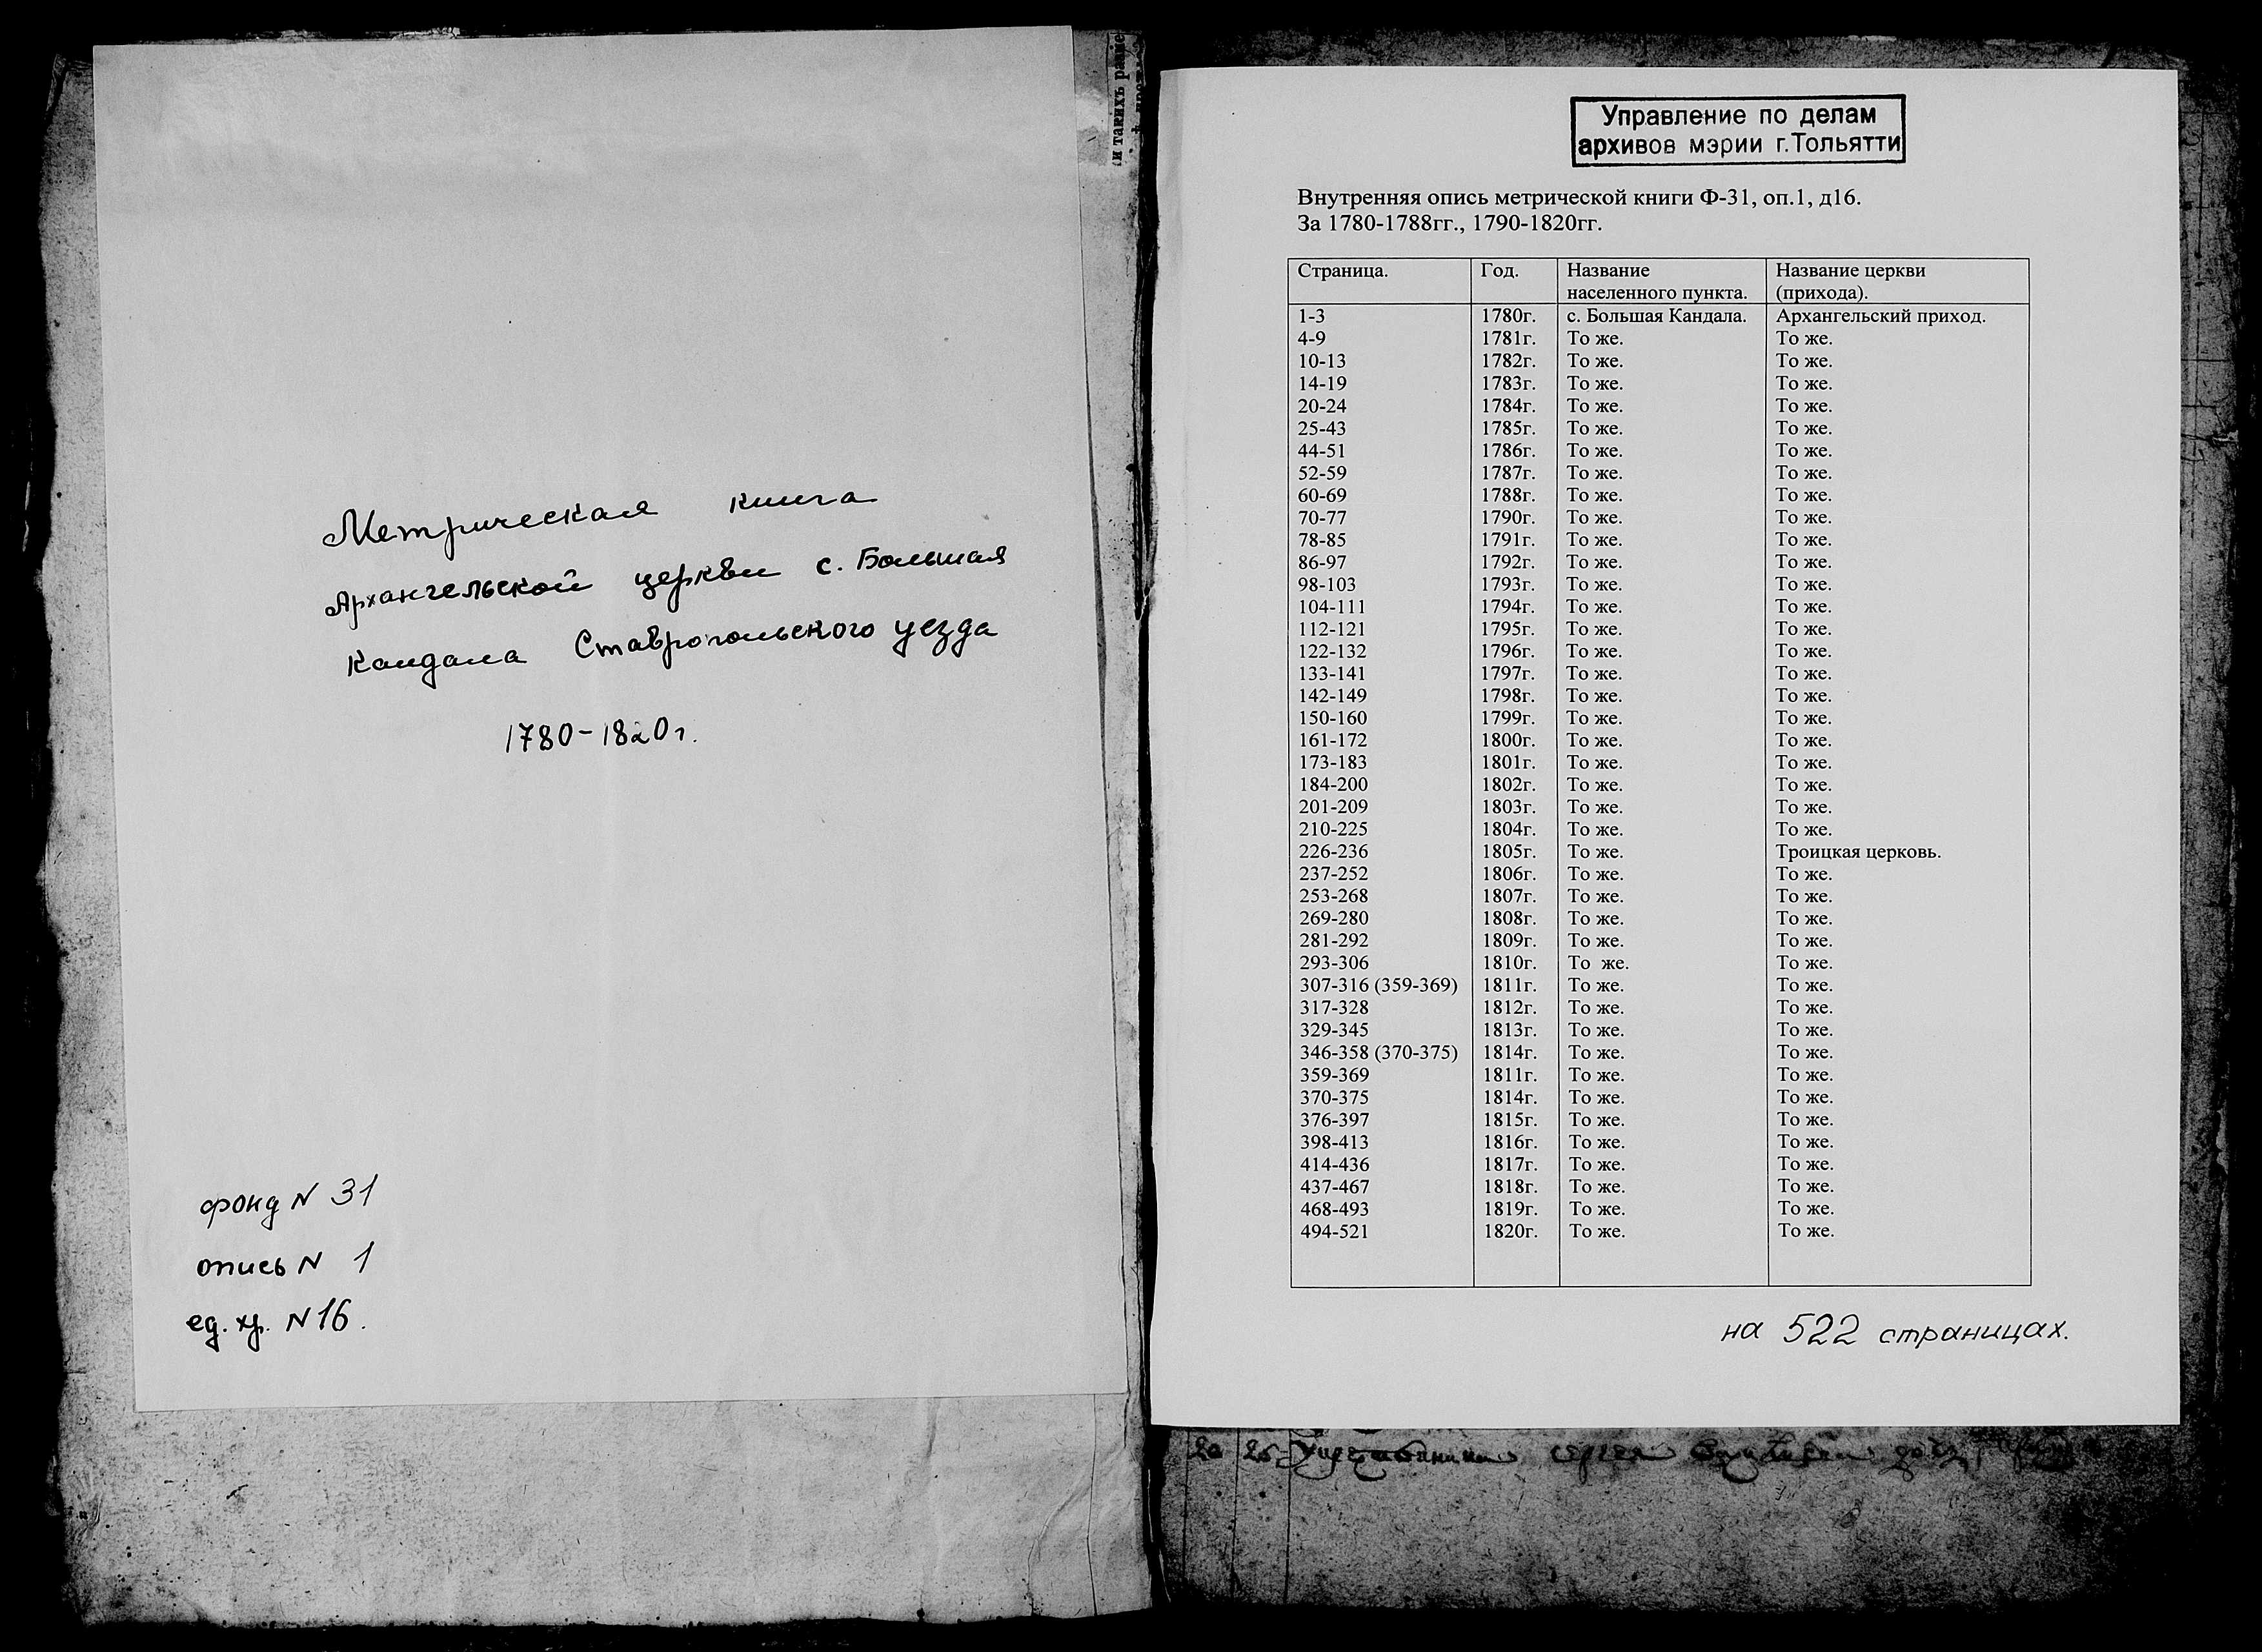 Метрическая книга
Архангельской церкви с. Большая
Кандала Ставропольского уезда
1780-1820г.
фонд N 31
опись N 1
ед. хр. N 16.
(и такихъ
Управление по делам
архивов мэрии г.Тольятти
Внутренняя опись метрической книги Ф-31, оп.1, д16.
За 1780-1788гг., 1790-1820гг.
Страница. Год. Название населенного пункта. Название церкви (прихода).
1-3 1780г. с. Большая Кандала. Архангельский приход.
4-9 1781г. То же. То же.
10-13 1782г. То же. То же.
14-19 1783г. То же. То же.
20-24 1784г. То же. То же.
25-43 1785г. То же. То же.
44-51 1786г. То же. То же.
52-59 1787г. То же. То же.
60-69 1788г. То же. То же.
70-77 1790г. То же. То же.
78-85 1791г. То же. То же.
86-97 1792г. То же. То же.
98-103 1793г. То же. То же.
104-111 1794г. То же. То же.
112-121 1795г. То же. То же.
122-132 1796г. То же. То же.
133-141 1797г. То же. То же.
142-149 1798г. То же. То же.
150-160 1799г. То же. То же.
161-172 1800г. То же. То же.
173-183 1801г. То же. То же.
184-200 1802г. То же. То же.
201-209 1803г. То же. То же.
210-225 1804г. То же. То же.
226-236 1805г. То же. Троицкая церковь.
237-252 1806г. То же. То же.
253-268 1807г. То же. То же.
269-280 1808г. То же. То же.
281-292 1809г. То же. То же.
293-306 1810г. То же. То же.
307-316 (359-369) 1811г. То же. То же.
317-328 1812г. То же. То же.
329-345 1813г. То же. То же.
346-358 (370-375) 1814г. То же. То же.
359-369 1811г. То же. То же.
370-375 1814г. То же. То же.
376-397 1815г. То же. То же.
398-413 1816г. То же. То же.
414-436 1817г. То же. То же.
437-467 1818г. То же. То же.
468-493 1819г. То же. То же.
494-521 1820г. То же. То же.
на 522 страницах.